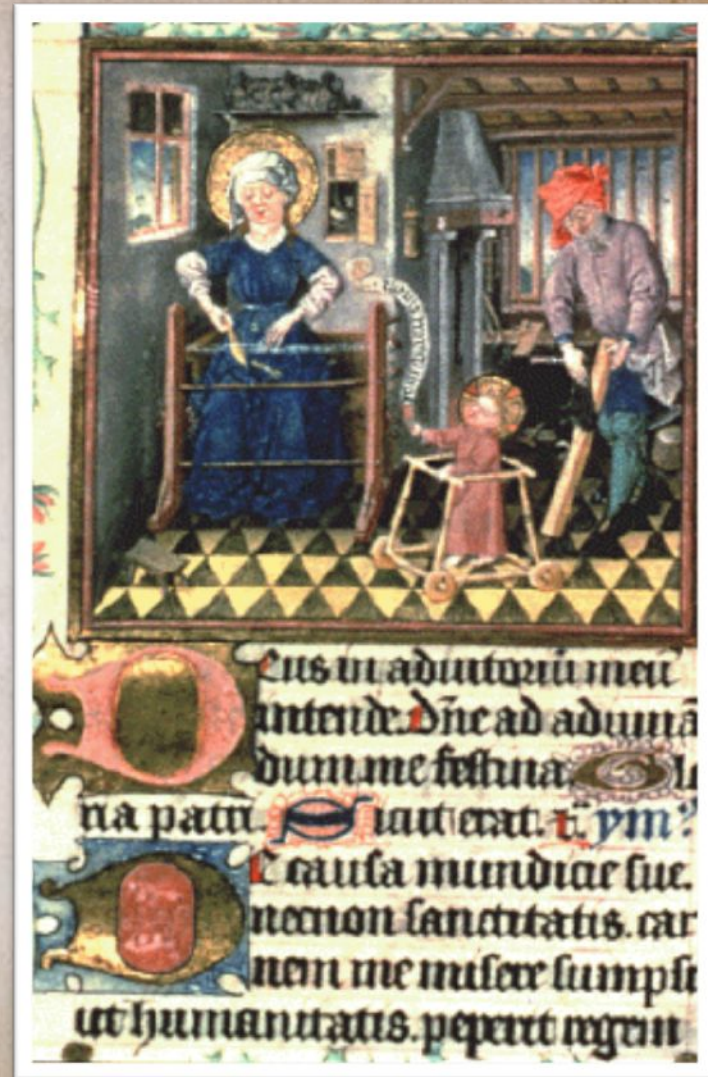 Deus in adiutoriū meū
intende. Dn̄e ad adiuuā
dum me festina Gl
ria patri. Sicut erat. ymn⁹
DE causa mundicie sue.
necnon sanctitatis. car
nem me misere sumpsi
ut humanitatis. peperit regem